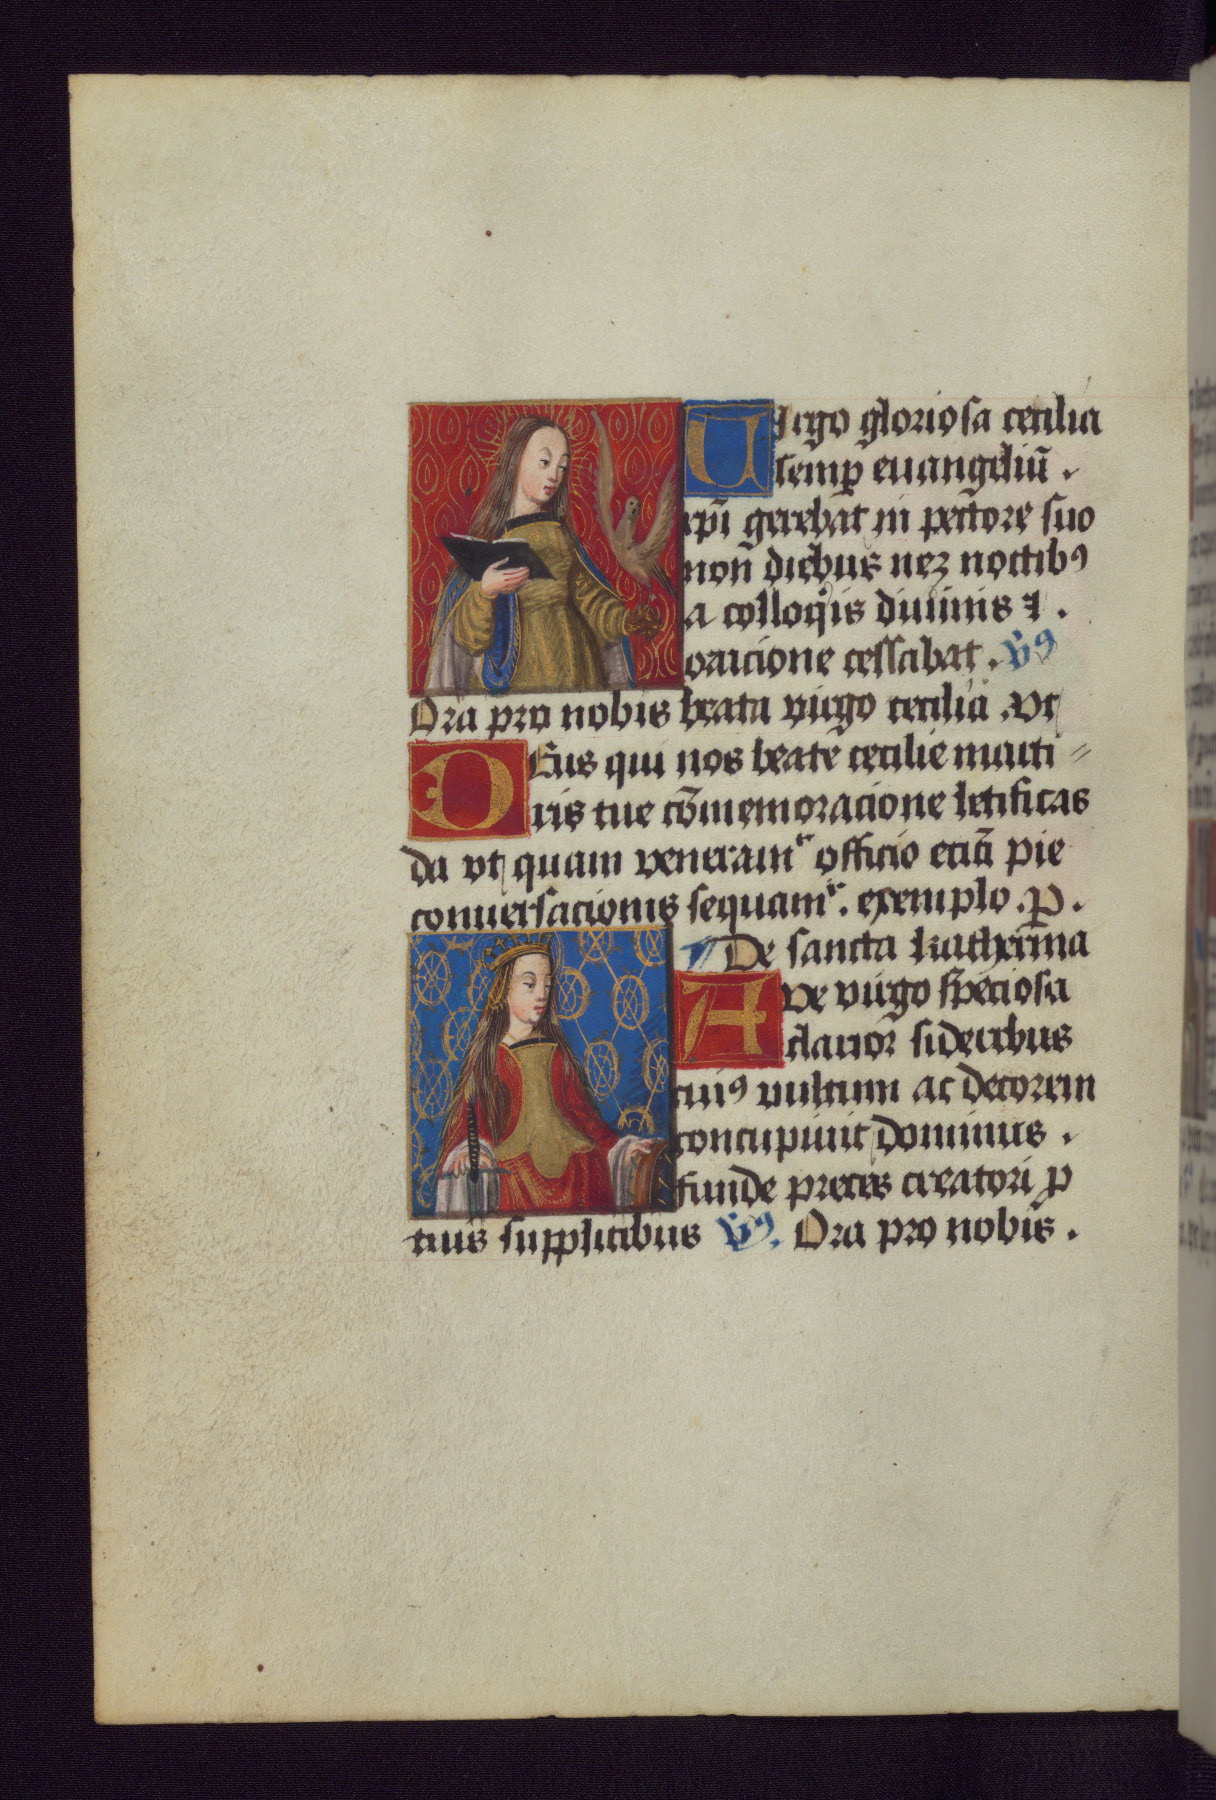 Uirgo gloriosa cecilia
semp̄ euangeliū .
xp̄i gerebat in pectore suo
non diebus nez noctibꝯ
a colloqis diuinis ⁊ .
oracione cessabat . ℣ꝯ
Ora pro nobis beata uirgo cecilia .Vt
DEus qui nos beate cecilie marti =
ris tue cōmemoracione letificas
da vt quam veneramr officio eciā pie
conuersacionis sequamr . exemplo .p̄ .
De sancta katherina
Aue uirgo speciosa
clarior sideribus
cuiꝯ uultum ac decorem
concupiuit dominus .
funde preces creatori p
tuis supplicibus ℣ꝯ. Ora pro nobis .